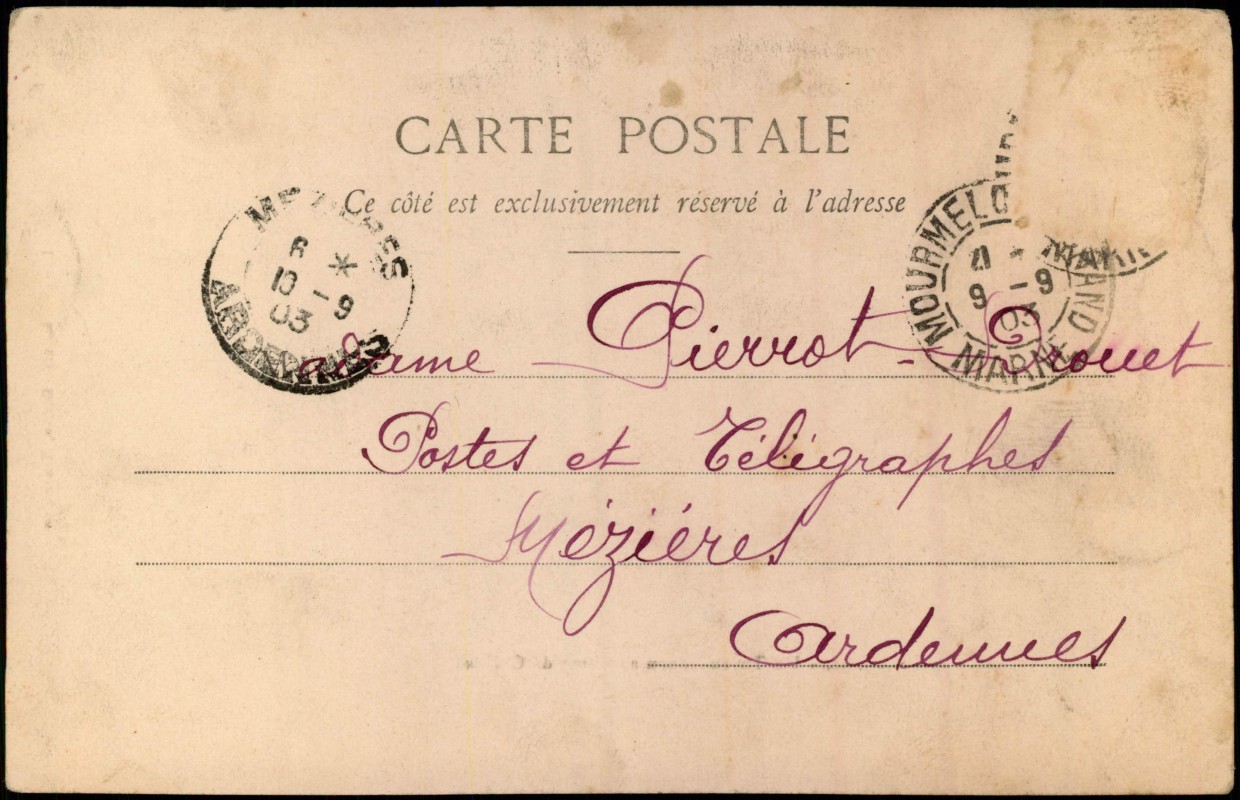 CARTE POSTALE
Ce côté est exclusivement réservé à l'adresse
MEZIERES
6 *
10 - 9
03
ARDENNES
MOURMELON GRAND
4 *
9 - 9
03
MARNE
MARNE
Madame Pierrot-Drouet
Postes et Télégraphes
Mézières
Ardennes